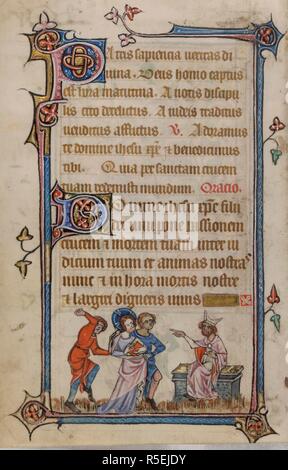 Patris sapiencia veritas di
uina. Deus homo captus
est hora matutina. A notis discipu
lis cito derelictus. A iudeis traditus
uenditus afflictus. V. Adoramus
te domine ihesu xpe et benedicimus
tibi. Quia per sanctam crucem
tuam redemisti mundum. Oratio.
Domine ihesu xpe fili
dei uiui pone passionem
crucem et mortem tuam inter iu
dicium tuum et animas nostras
nunc et in hora mortis nostre
et largiri digneris uiuis
R5EJDY